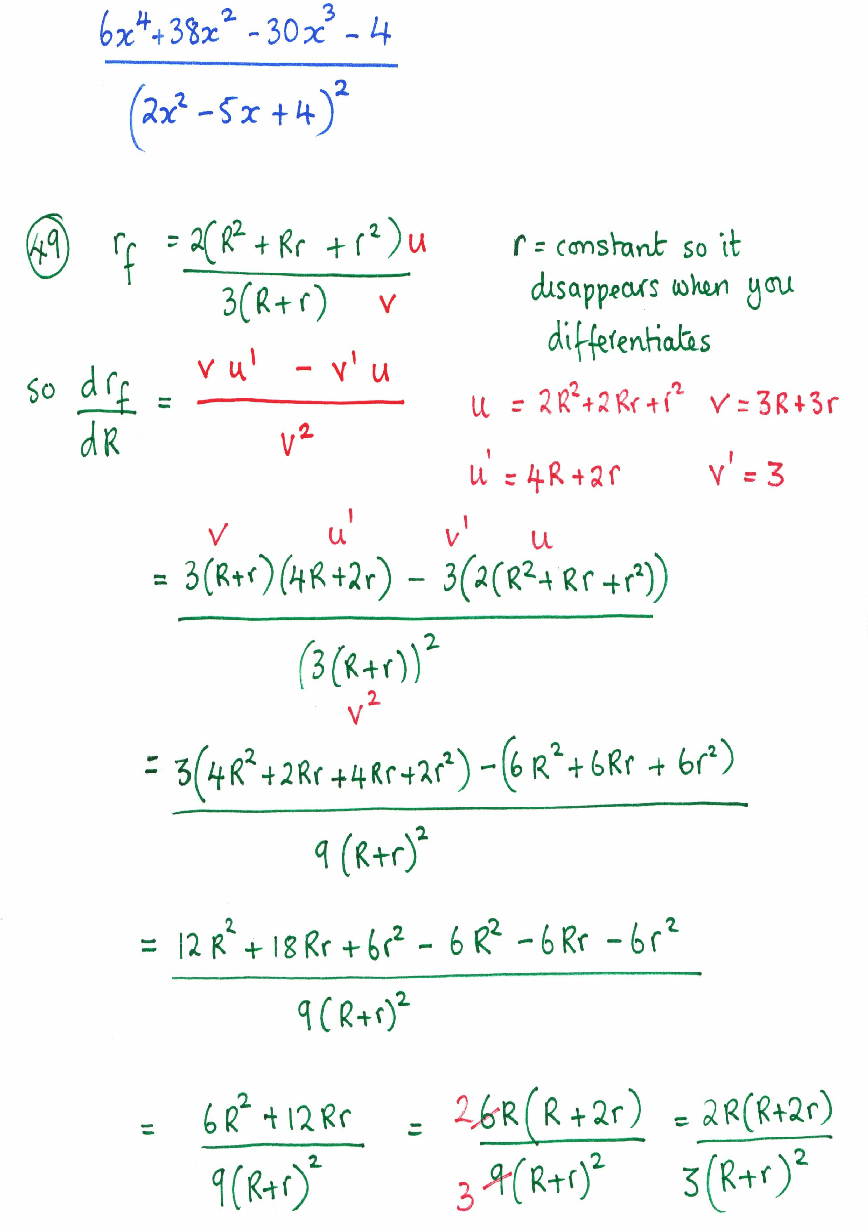 6x⁴+38x² -30x³ - 4
(2x² -5x +4)²
49 r_f = 2(R² + Rr + r²) u
3(R+r) v
r = constant so it
disappears when you
differentiates
so dr_f = v u' - v' u
dR v²
u = 2R²+2Rr+r² v=3R+3r
u' = 4R+2r v' = 3
v u' v' u
= 3(R+r)(4R+2r) - 3(2(R²+ Rr +r²))
(3(R+r))²
v²
= 3(4R²+2Rr+4Rr+2r²) -(6R²+6Rr + 6r²)
9(R+r)²
= 12R² + 18Rr + 6r² - 6R² -6Rr -6r²
9(R+r)²
= 6R² +12Rr = 2 6R(R+2r) = 2R(R+2r)
9(R+r)² 3 9(R+r)² 3(R+r)²